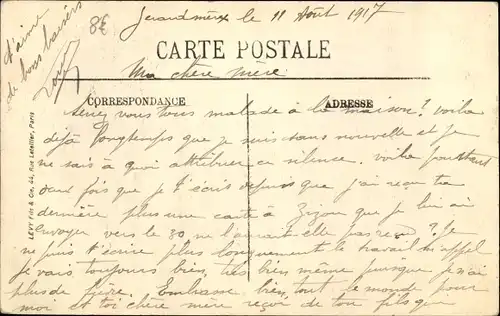 Gerardmer le 11 Août 1917
8€
CARTE POSTALE
Ma chère mère
CORRESPONDANCE
ADRESSE
vous tous malade à la maison? voila
déjà longtemps que je suis sans nouvelle et je
ne sais à quoi attribuer ce silence. voila pourtant
deux fois que je t'écris depuis que j'ai reçu ta
dernière plus une carte à que je lui ai
envoyer vers le 30 ne l'aurait elle pas reçu? Je
ne puis t'écrire plus longuement le travail m'appel
je vais toujours bien, très bien même puisque je n'ai
plus de fièvre. Embrasse bien tout le monde pour
moi et toi chère mère reçoi de ton fils que
t'aime
de bons baisers
LEVY Fils & Cie, 44, Rue Letellier, Paris